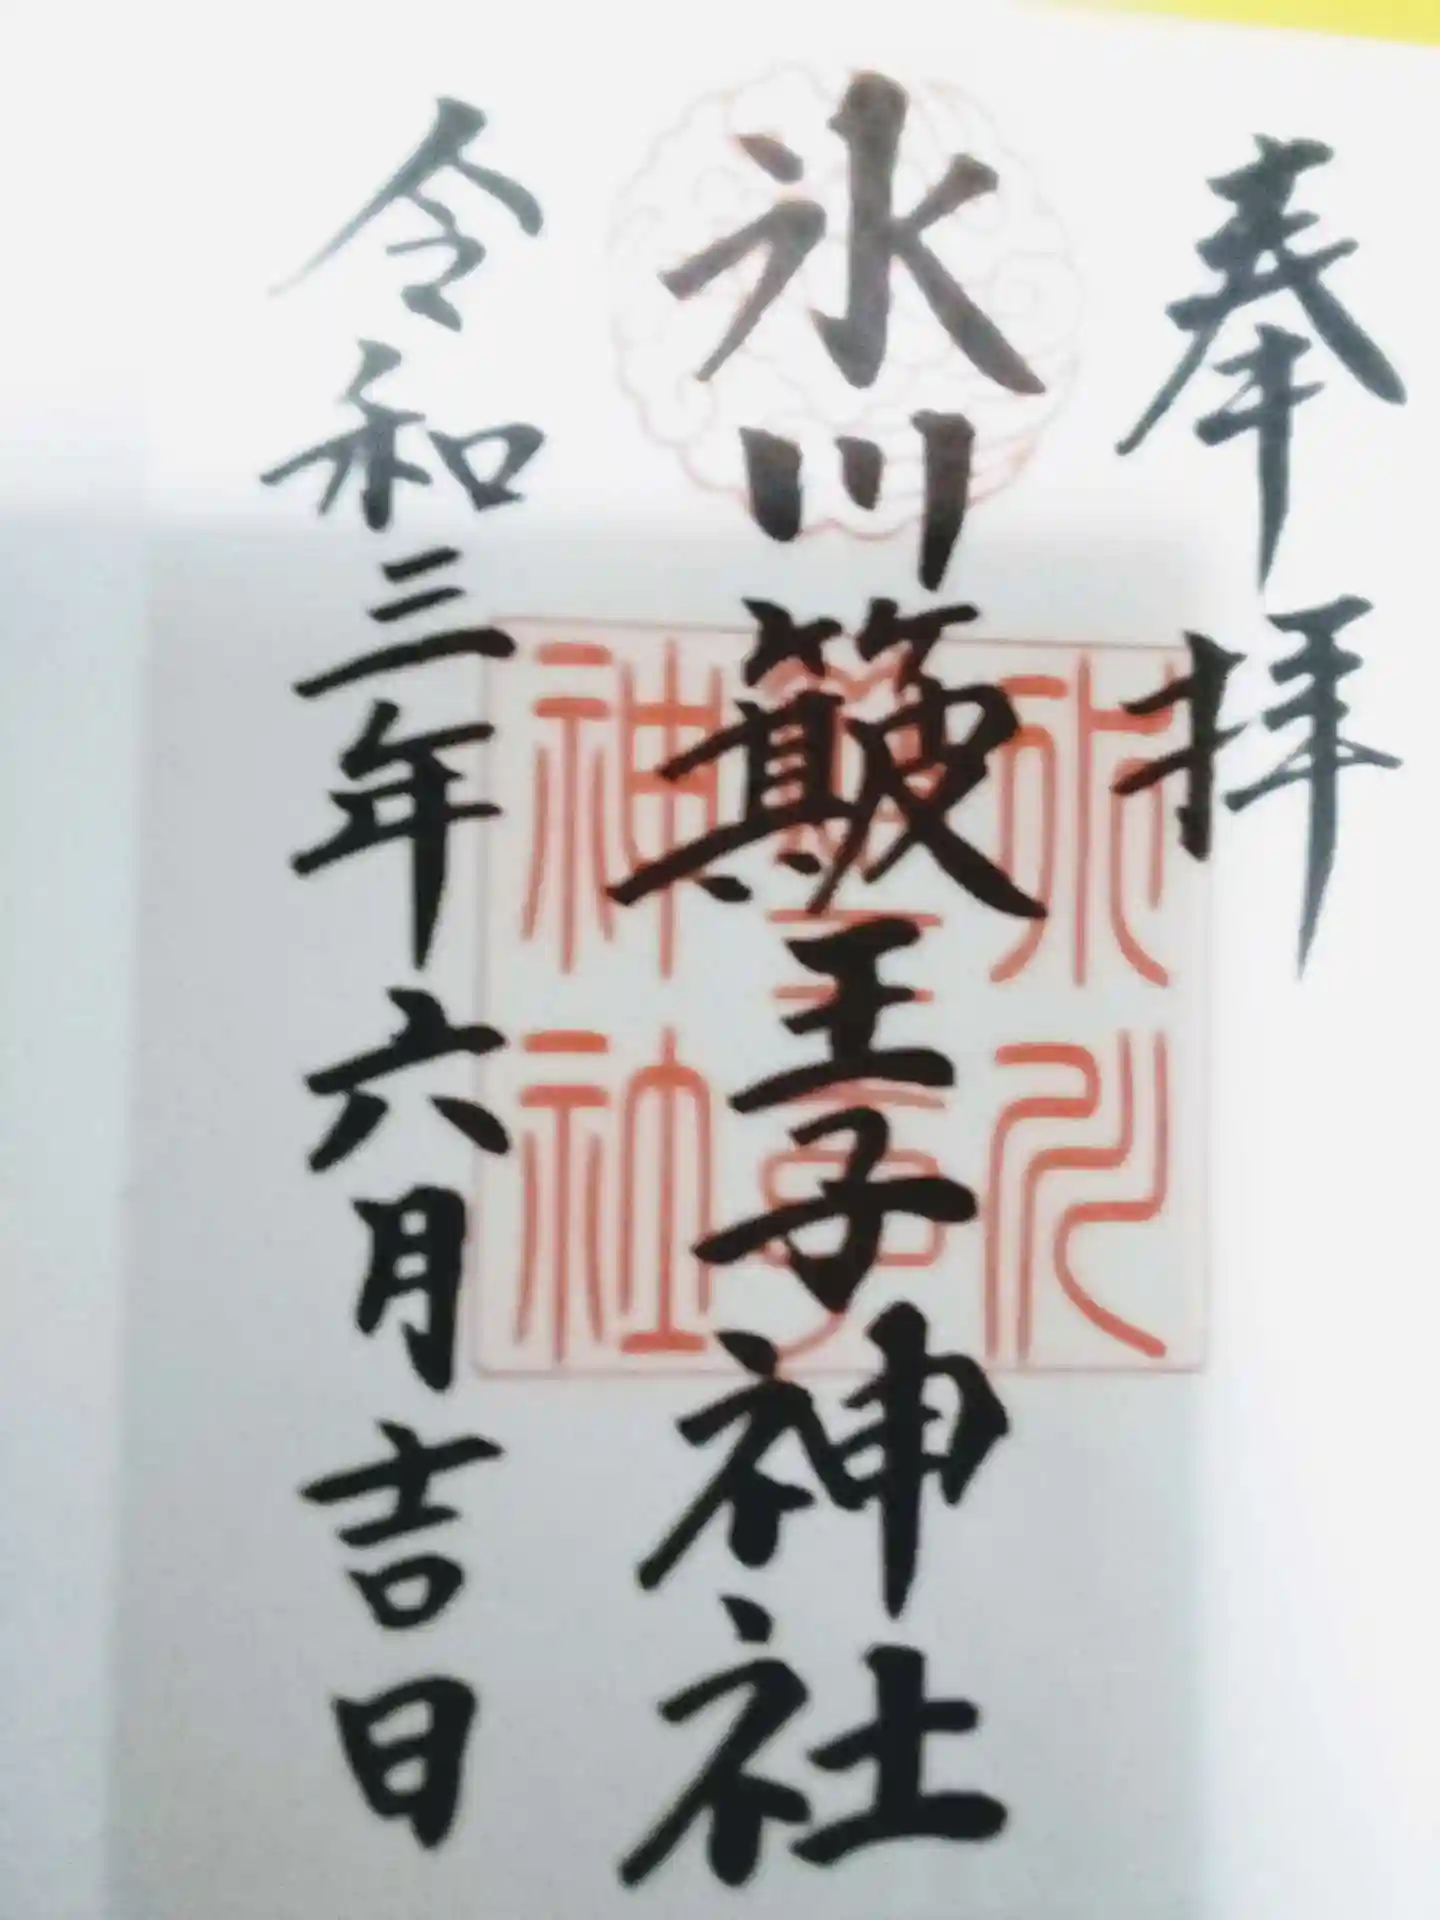 奉拝
氷川簸王子神社
令和三年六月吉日
氷川
簸王子
神社